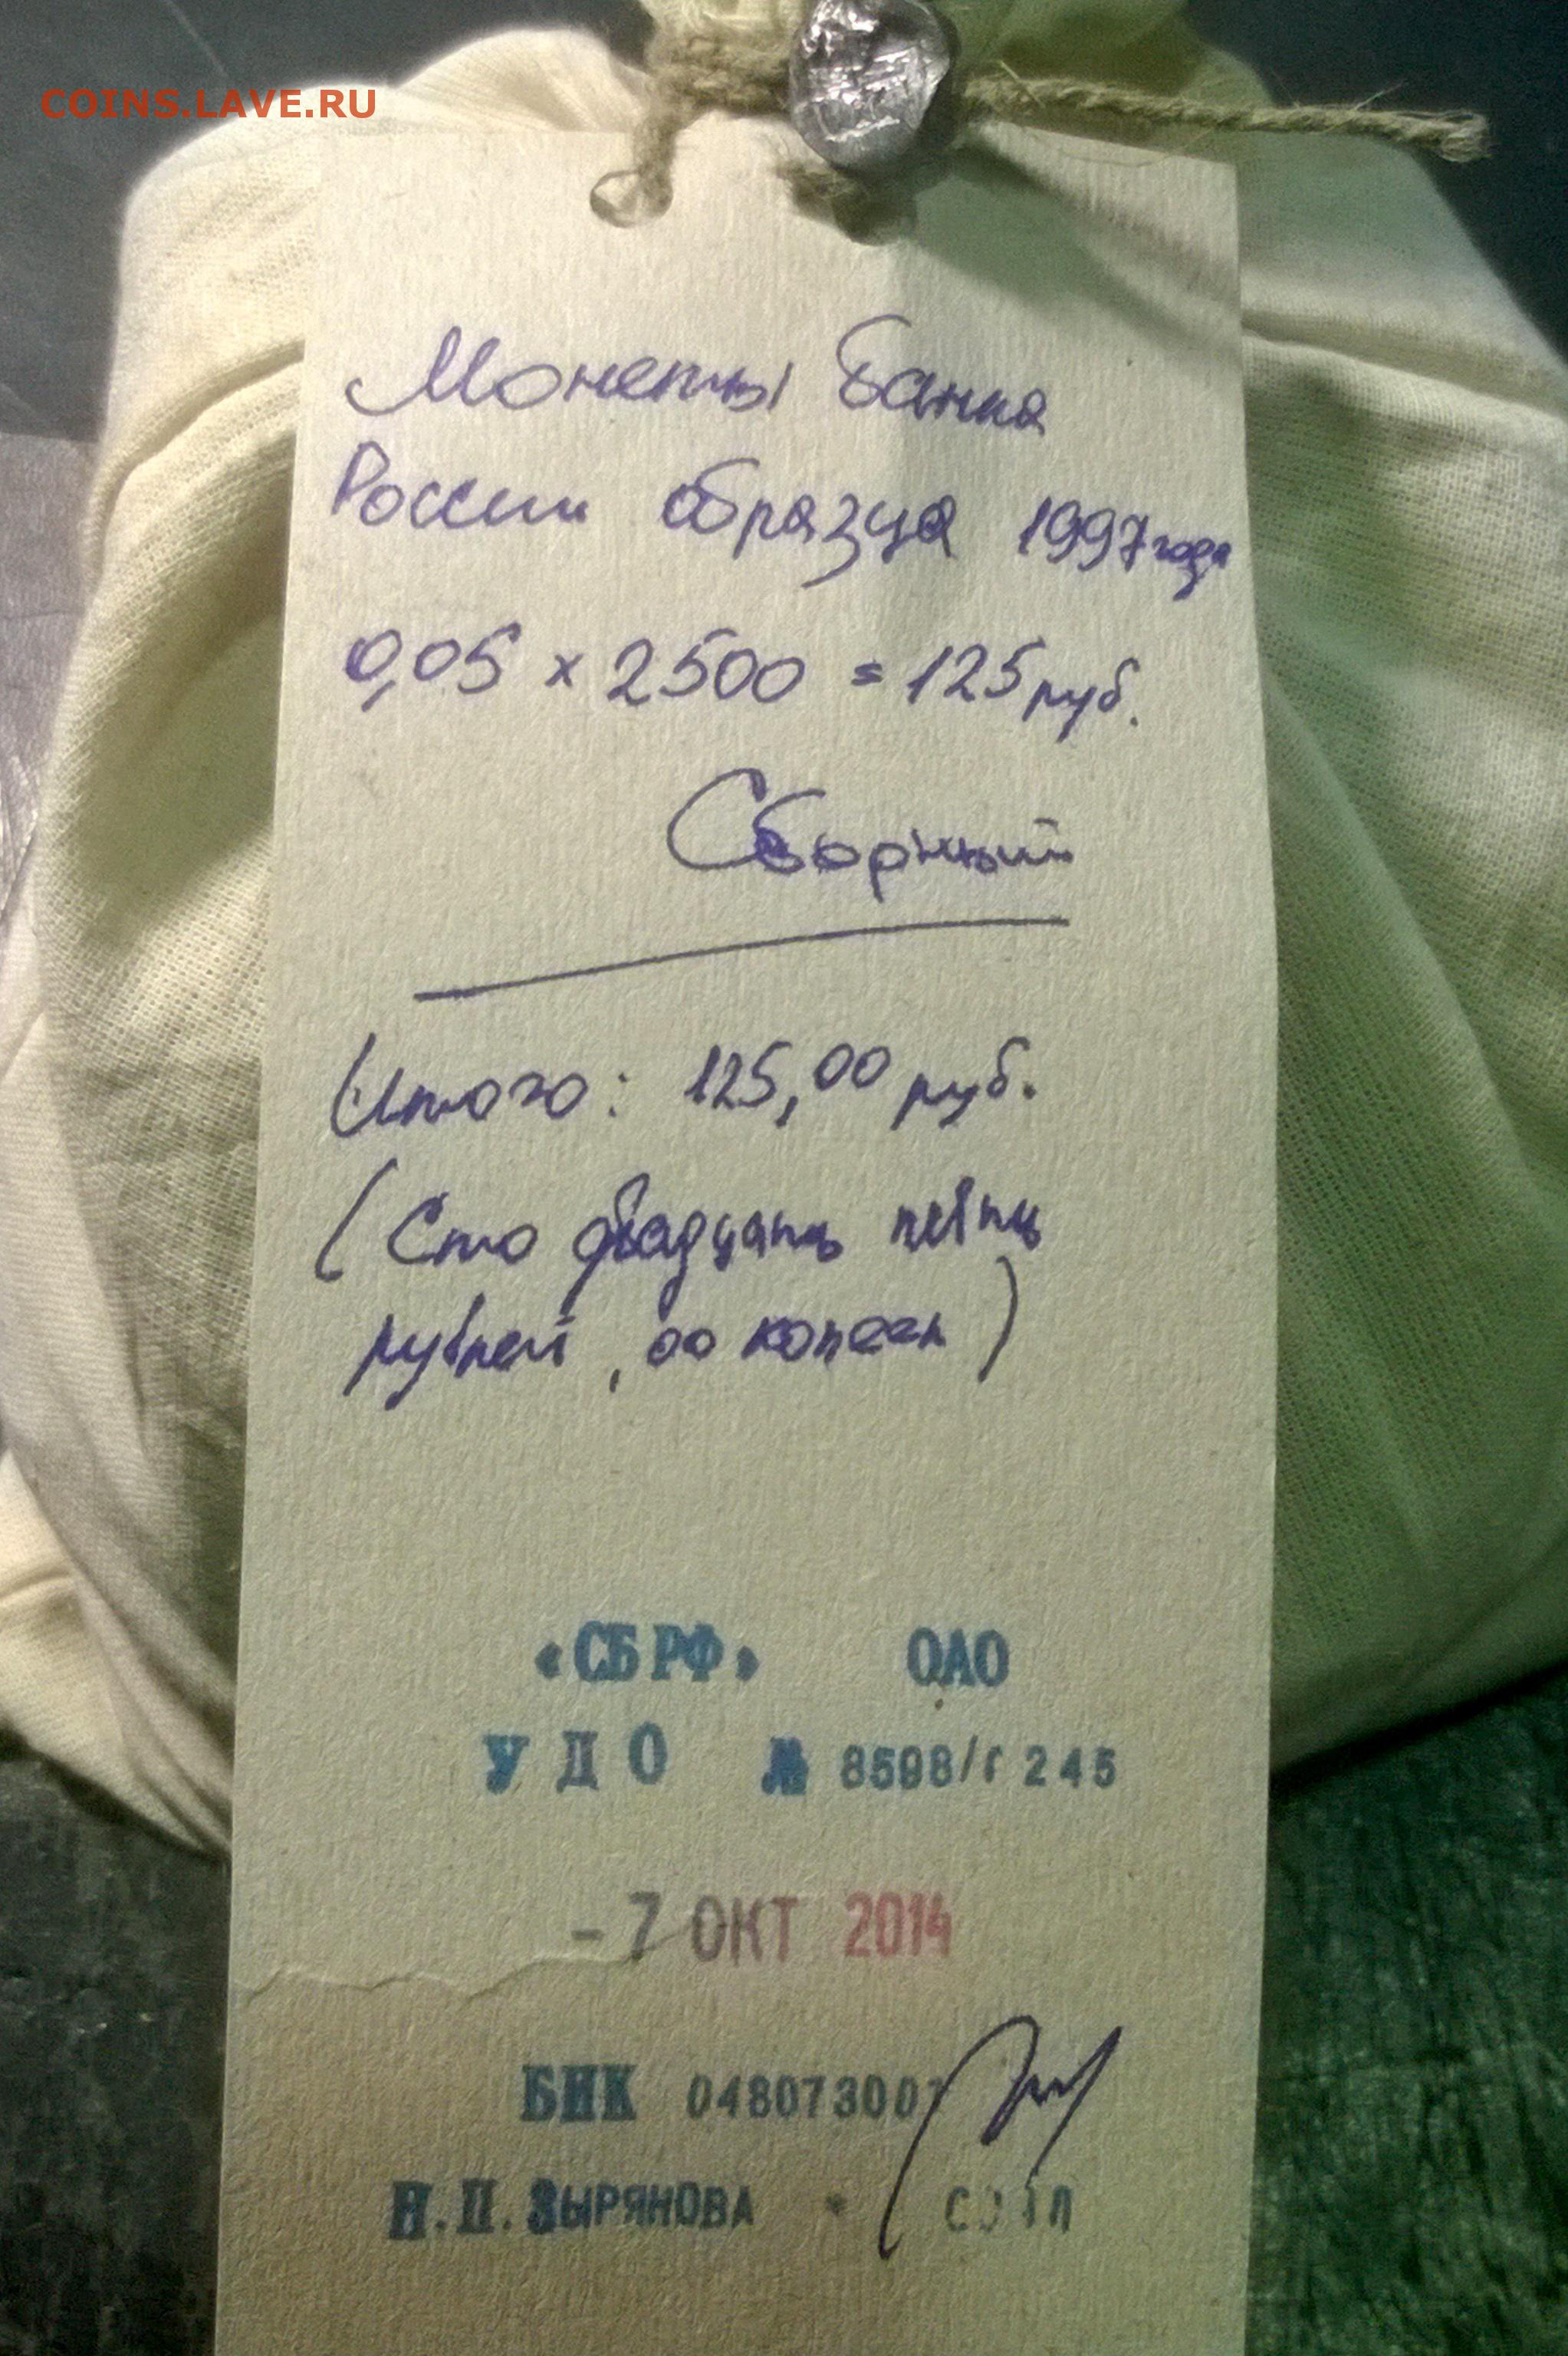 COINS.LAVE.RU
Монеты Банка
России образца 1997 года
0,05 × 2500 = 125 руб.
Сборный
Итого: 125,00 руб.
(Сто двадцать пять
рублей, 00 копеек)
«СБ РФ» ОАО
УДО № 8598/ 245
- 7 ОКТ 2014
БИК
Н.П. ЗЫРЯНОВА